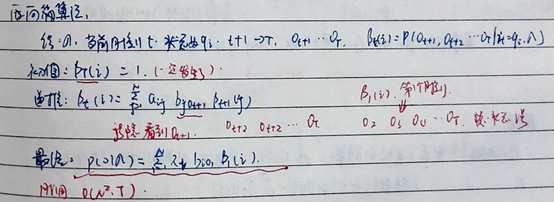 后向算法:
给 λ, 当前时刻 t. 状态为 qi. t+1 → T, O_{t+1} … O_T. β_t(i) = P(O_{t+1}, O_{t+2} … O_T | i_t = q_i, λ)
初值: β_T(i) = 1. (一定发生)
递推: β_t(i) = Σ_{j=1}^{N} a_{ij} b_{j o_{t+1}} β_{t+1}(j) β_1(i). 第1个时刻.
看到 O_{t+1}. O_{t+2} O_{t+2} … O_T O_2 O_3 O_4 … O_T.
最后: P(O|λ) = Σ b_{i o_1} β_1(i).
时间 O(N²·T).